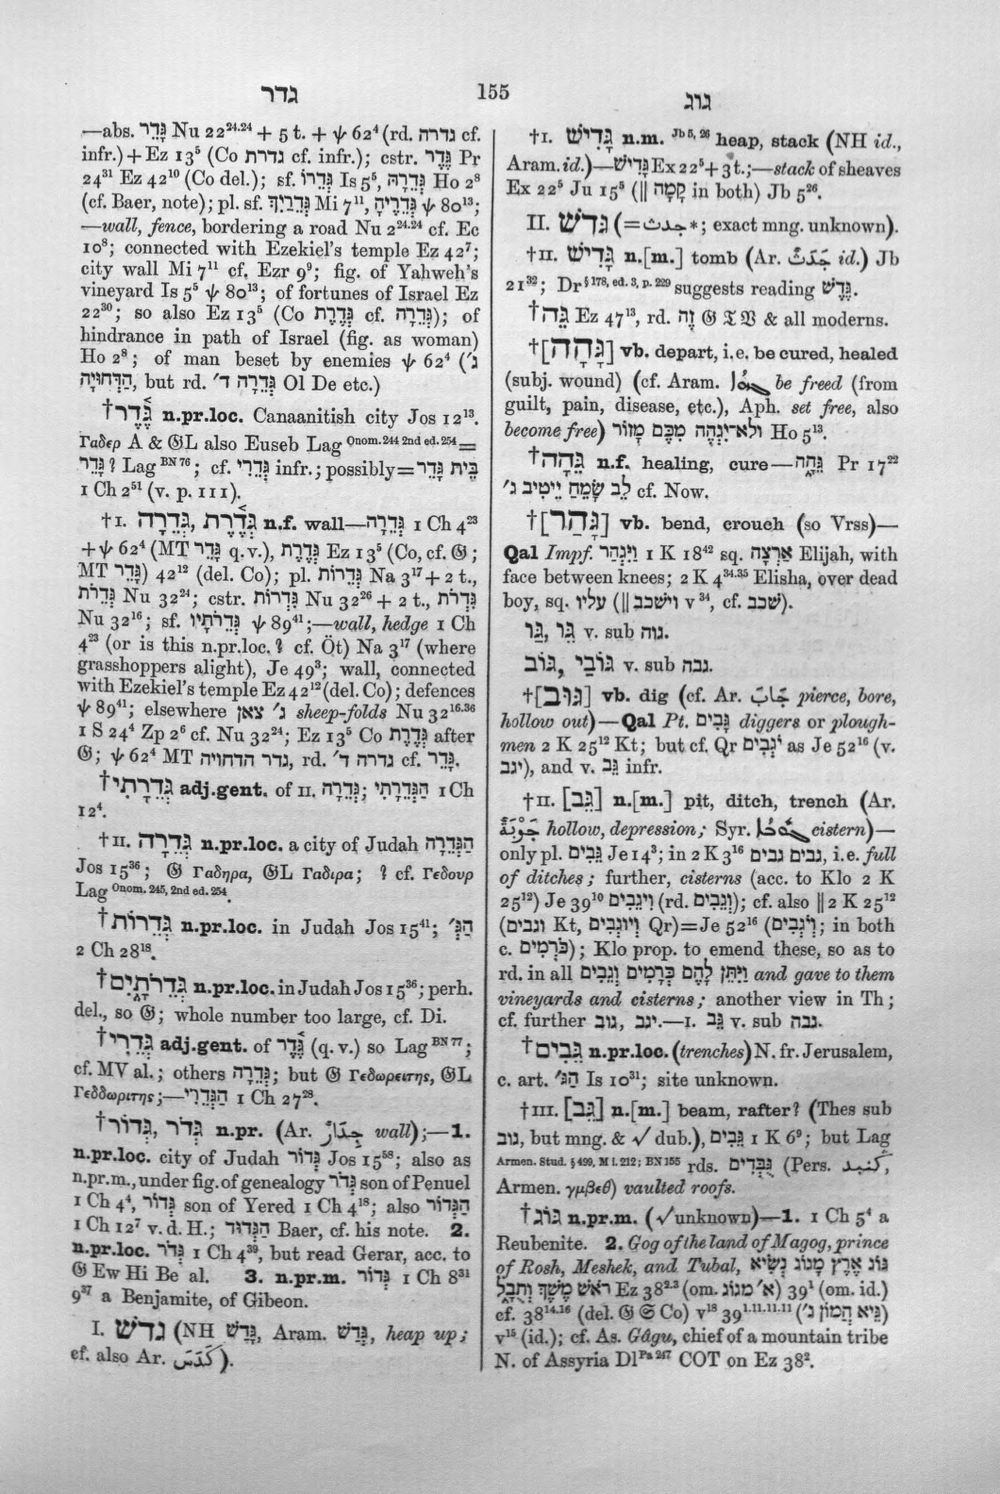 גדר
155
גוג
—abs. גָּדֵר Nu 22²⁴·²⁴ + 5 t. + ψ 62⁴ (rd. גדרה cf.
infr.) + Ez 13⁵ (Co גדרת cf. infr.); cstr. גֶּדֶר Pr
24³¹ Ez 42¹⁰ (Co del.); sf. גְּדֵרוֹ Is 5⁵, גְּדֵרָהּ Ho 2⁸
(cf. Baer, note); pl. sf. גְּדֵרַיִךְ Mi 7¹¹, גְּדֵרֶיהָ ψ 80¹³;
—wall, fence, bordering a road Nu 2²⁴·²⁴ cf. Ec
10⁸; connected with Ezekiel's temple Ez 42⁷;
city wall Mi 7¹¹ cf. Ezr 9⁹; fig. of Yahweh's
vineyard Is 5⁵ ψ 80¹³; of fortunes of Israel Ez
22³⁰; so also Ez 13⁵ (Co גְּדֶרֶת cf. גְּדֵרָה); of
hindrance in path of Israel (fig. as woman)
Ho 2⁸; of man beset by enemies ψ 62⁴ (ג׳
הַדְּחוּיָה, but rd. גְּדֵרָה ד׳ Ol De etc.)
†גֶּדֶר n.pr.loc. Canaanitish city Jos 12¹³.
Γαδερ A & 𝔊L also Euseb Lag Onom. 244 2nd ed. 254 =
גָּדֵר? Lag BN 76; cf. גְּדֵרִי infr.; possibly = בֵּית גָּדֵר
1 Ch 2⁵¹ (v. p. 111).
†I. גְּדֵרָה, גְּדֶרֶת n.f. wall—גְּדֵרָה 1 Ch 4²³
+ ψ 62⁴ (MT גָּדֵר q.v.), גְּדֶרֶת Ez 13⁵ (Co, cf. 𝔊;
MT גָּדֵר) 42¹² (del. Co); pl. גְּדֵרוֹת Na 3¹⁷ + 2 t.,
גְּדֵרֹת Nu 32²⁴; cstr. גִּדְרוֹת Nu 32³⁶ + 2 t., גִּדְרֹת
Nu 32¹⁶; sf. גְּדֵרֹתָיו ψ 89⁴¹;—wall, hedge 1 Ch
4²³ (or is this n.pr.loc.? cf. Öt) Na 3¹⁷ (where
grasshoppers alight), Je 49³; wall, connected
with Ezekiel's temple Ez 42¹² (del. Co); defences
ψ 89⁴¹; elsewhere ג׳ צֹאן sheep-folds Nu 32¹⁶·³⁶
1 S 24⁴ Zp 2⁶ cf. Nu 32²⁴; Ez 13⁵ Co גְּדֶרֶת after
𝔊; ψ 62⁴ MT גדר הדחויה, rd. גדרה ד׳ cf. גָּדֵר.
†גְּדֵרָתִי adj.gent. of II. גְּדֵרָה; הַגְּדֵרָתִי 1 Ch
12⁴.
†II. גְּדֵרָה n.pr.loc. a city of Judah הַגְּדֵרָה
Jos 15³⁶; 𝔊 Γαδηρα, 𝔊L Γαδιρα; ? cf. Γεδουρ
Lag Onom. 245, 2nd ed. 254.
†גְּדֵרוֹת n.pr.loc. in Judah Jos 15⁴¹; הַגְּ׳
2 Ch 28¹⁸.
†גְּדֵרֹתָיִם n.pr.loc. in Judah Jos 15³⁶; perh.
del., so 𝔊; whole number too large, cf. Di.
†גְּדֵרִי adj.gent. of גֶּדֶר (q.v.) so Lag BN 77;
cf. MV al.; others גְּדֵרָה; but 𝔊 Γεδωρειτης, 𝔊L
Γεδδωριτης;—הַגְּדֵרִי 1 Ch 27²⁸.
†גְּדֹר, גְּדוֹר n.pr. (Ar. جِدَارٌ wall);—1.
n.pr.loc. city of Judah גְּדוֹר Jos 15⁵⁸; also as
n.pr.m., under fig. of genealogy גְּדֹר son of Penuel
1 Ch 4⁴, גְּדוֹר son of Yered 1 Ch 4¹⁸; also הַגְּדוֹר
1 Ch 12⁷ v. d. H.; הַגְּדוּד Baer, cf. his note. 2.
n.pr.loc. גְּדֹר 1 Ch 4³⁹, but read Gerar, acc. to
𝔊 Ew Hi Be al. 3. n.pr.m. גְּדוֹר 1 Ch 8³¹
9³⁷ a Benjamite, of Gibeon.
I. גדשׁ (NH גָּדַשׁ, Aram. גְּדַשׁ, heap up;
cf. also Ar. كَدَسَ).
†I. גָּדִישׁ n.m. Jb 5, 26 heap, stack (NH id.,
Aram. id.)—גָּדִישׁ Ex 22⁵ + 3 t.;—stack of sheaves
Ex 22⁵ Ju 15⁵ (‖ קָמָה in both) Jb 5²⁶.
II. גדשׁ (= جدث*; exact mng. unknown).
†II. גָּדִישׁ n.[m.] tomb (Ar. جَدَثٌ id.) Jb
21³²; Dr § 178, ed. 3, p. 229 suggests reading גָּדֵשׁ.
†גֵּה Ez 47¹³, rd. זֶה 𝔊 𝔗 𝔙 & all moderns.
†[גָּהָה] vb. depart, i.e. be cured, healed
(subj. wound) (cf. Aram. be freed (from
guilt, pain, disease, etc.), Aph. set free, also
become free) וְלֹא־יִגְהֶה מִכֶּם מָזוֹר Ho 5¹³.
†גֵּהָה n.f. healing, cure—גֵּהָה Pr 17²²
לֵב שָׂמֵחַ יֵיטִיב ג׳ cf. Now.
†[גָּהַר] vb. bend, crouch (so Vrss)—
Qal Impf. וַיִּגְהַר 1 K 18⁴² sq. אַרְצָה Elijah, with
face between knees; 2 K 4³⁴·³⁵ Elisha, over dead
boy, sq. עליו (‖ וישכב v ³⁴, cf. שכב).
גֵּו, גַּו v. sub גוה.
גּוֹב, גּוֹבַי v. sub גבה.
†[גּוּב] vb. dig (cf. Ar. جَابَ pierce, bore,
hollow out)—Qal Pt. גָּבִים diggers or plough-
men 2 K 25¹² Kt; but cf. Qr יֹגְבִים as Je 52¹⁶ (v.
יגב), and v. גֵּב infr.
†II. [גֵּב] n.[m.] pit, ditch, trench (Ar.
جَوْبَةٌ hollow, depression; Syr. cistern)—
only pl. גֵּבִים Je 14³; in 2 K 3¹⁶ גבים גבים, i.e. full
of ditches; further, cisterns (acc. to Klo 2 K
25¹²) Je 39¹⁰ וִיגֵבִים (rd. וְגֵבִים); cf. also ‖ 2 K 25¹²
(וגבים Kt, וְיֹגְבִים Qr) = Je 52¹⁶ (וְיֹגְבִים; in both
c. כֹּרְמִים); Klo prop. to emend these, so as to
rd. in all וַיִּתֵּן לָהֶם כְּרָמִים וְגֵבִים and gave to them
vineyards and cisterns; another view in Th;
cf. further גוב, יגב.—I. גֵּב v. sub גבה.
†גֵּבִים n.pr.loc. (trenches) N. fr. Jerusalem,
c. art. הַגּ׳ Is 10³¹; site unknown.
†III. [גֵּב] n.[m.] beam, rafter? (Thes sub
גוב, but mng. & √ dub.), גֵּבִים 1 K 6⁹; but Lag
Armen. Stud. § 499, M i. 212; BN 155 rds. (Pers.
Armen. γμβεθ) vaulted roofs.
†גּוֹג n.pr.m. (√ unknown)—1. 1 Ch 5⁴ a
Reubenite. 2. Gog of the land of Magog, prince
of Rosh, Meshek, and Tubal, גּוֹג אֶרֶץ מָגוֹג נְשִׂיא
רֹאשׁ מֶשֶׁךְ וְתֻבָל Ez 38²·³ (om. א׳ מגוג) 39¹ (om. id.)
cf. 38¹⁴·¹⁶ (del. 𝔊 𝔖 Co) v¹⁸ 39¹·¹¹·¹¹·¹¹ (גֵּיא הֲמוֹן ג׳)
v¹⁵ (id.); cf. As. Gâgu, chief of a mountain tribe
N. of Assyria Dl Pa 247 COT on Ez 38².